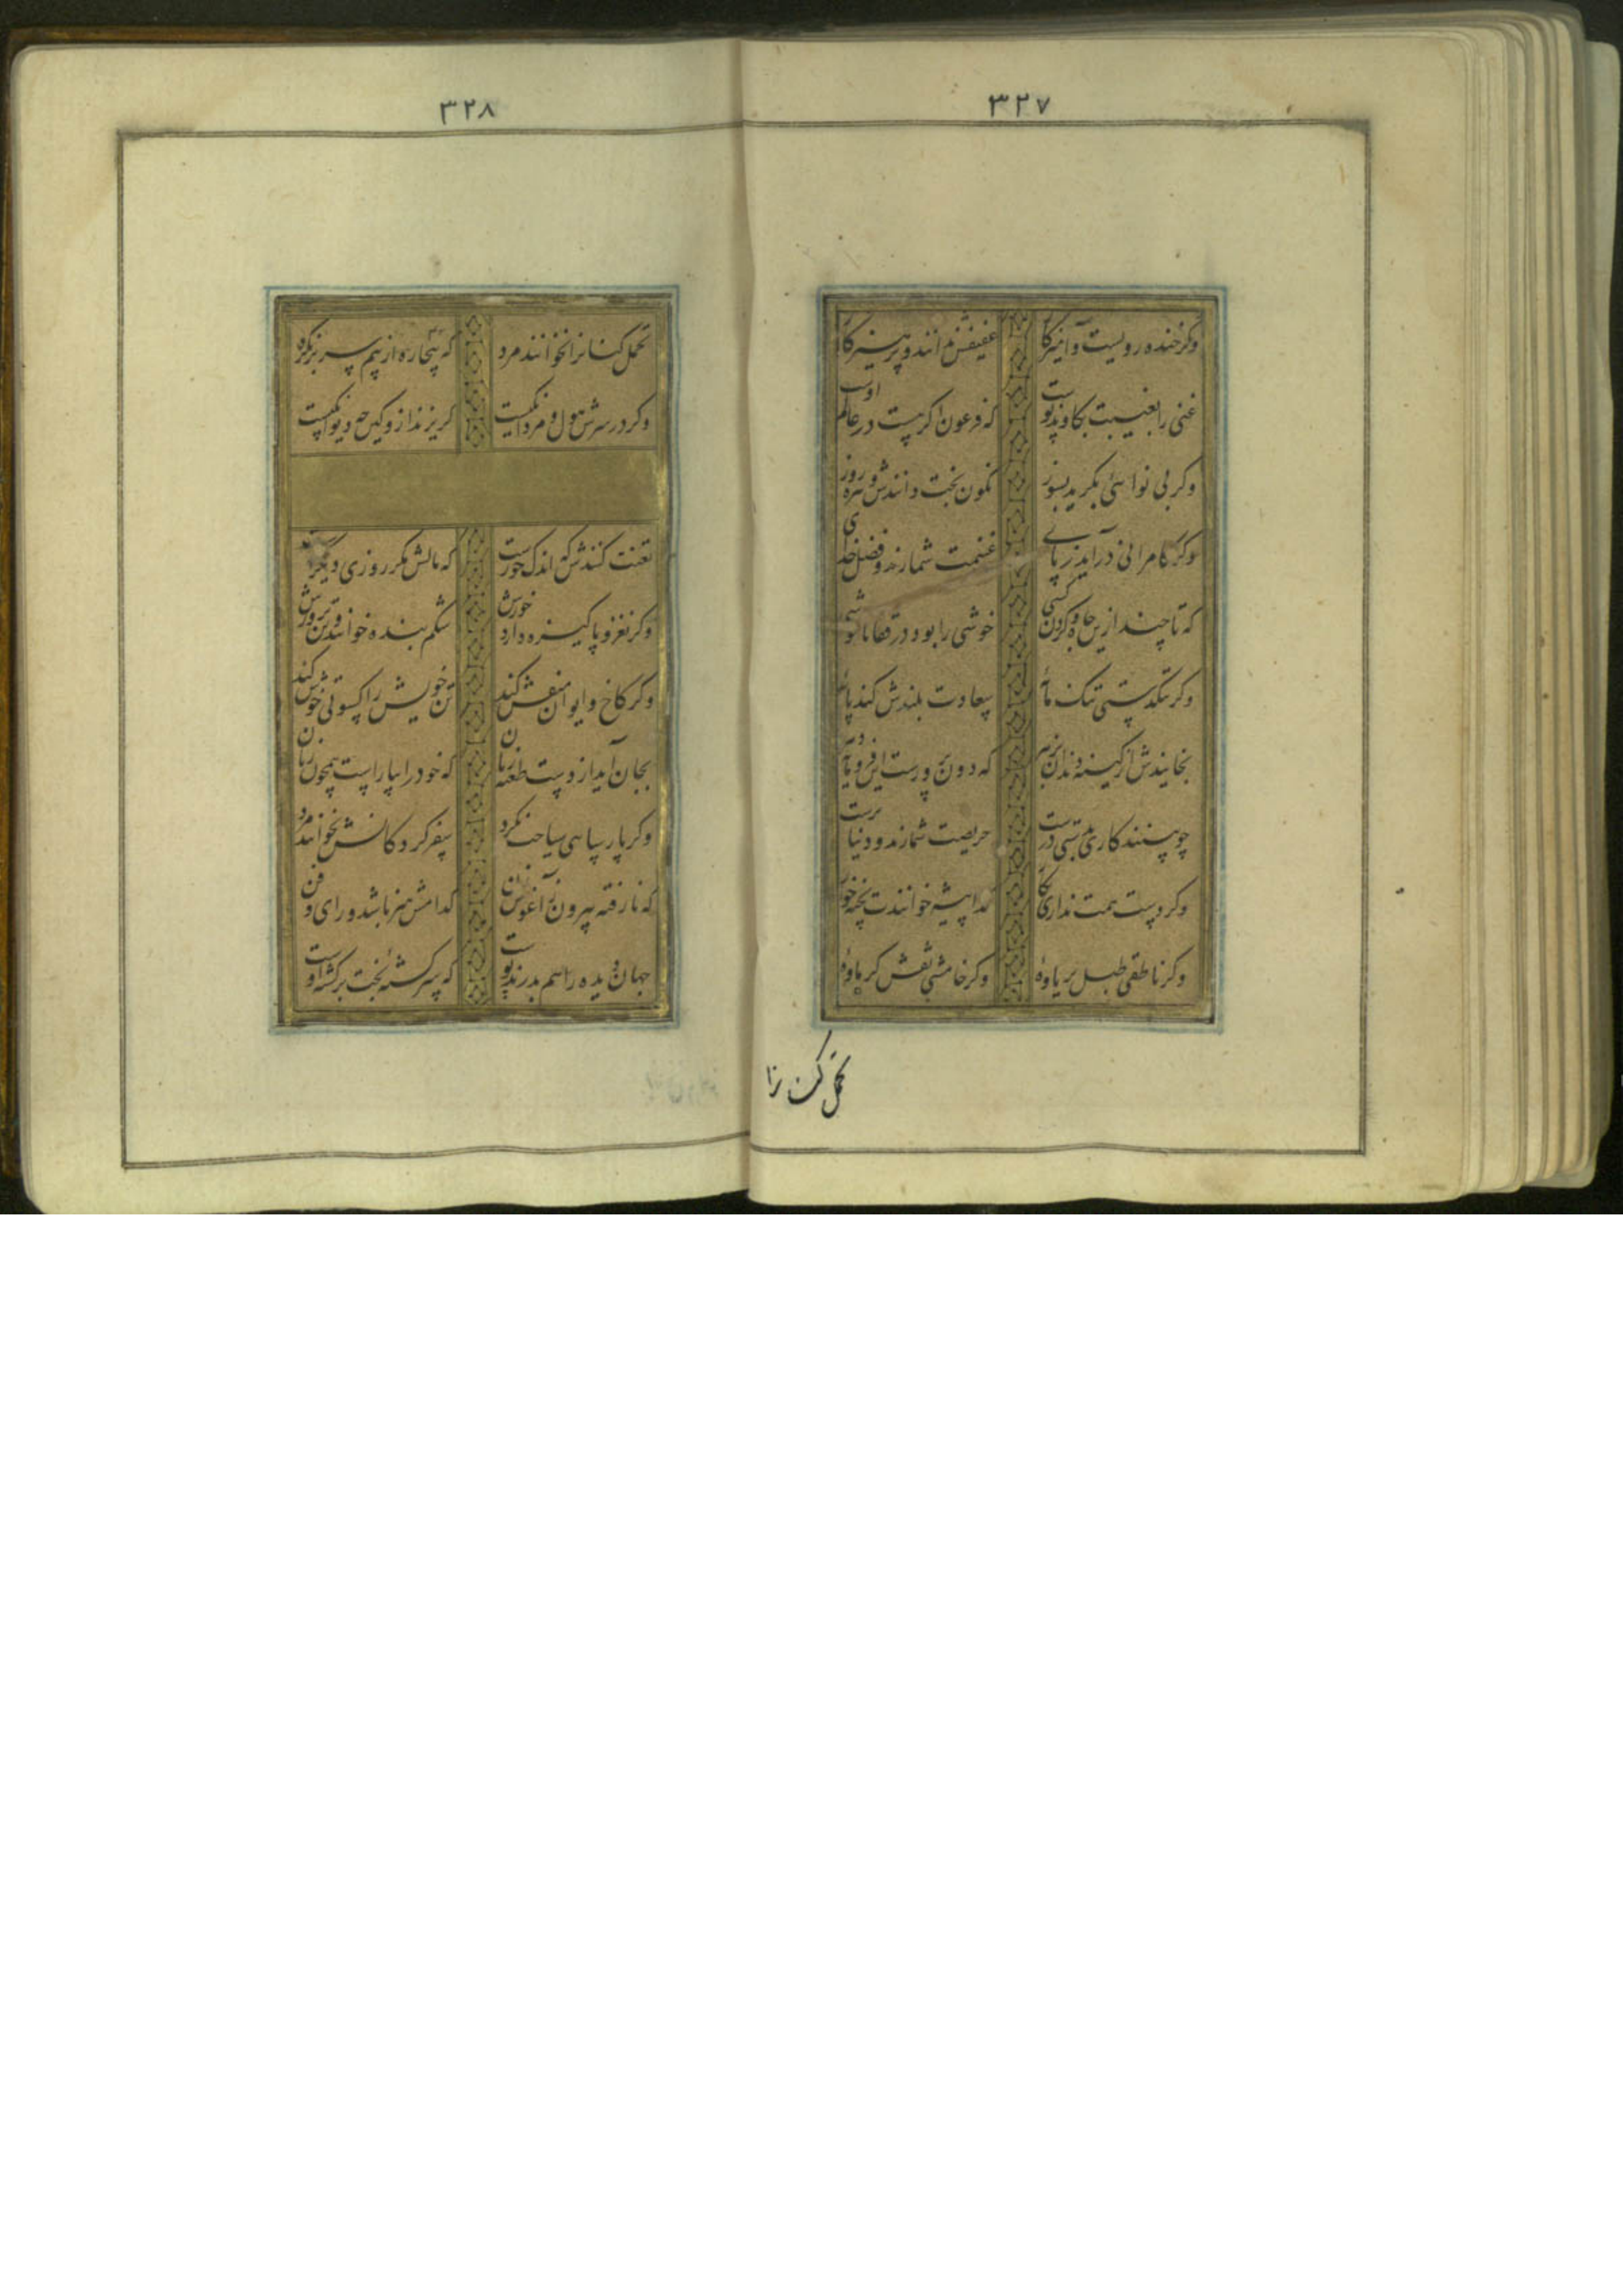 ۳۲۷
وکر خنده رویست و آمیزکار عفیفش ندانند و پرهیزکار
غنی را بغیبت بکاوند پوست که فرعون اکر هست در عالم اوست
وکر بی نوائی بکرید بسوز نکون بخت دانندش و تیره روز
وکر کامرانی درآید ز پای غنیمت شمارند و فضل خدای
که تا چند ازین جاه و کردن کشی خوشی را بود در قفا ناخوشی
وکر تنکدستی تنک مایهٔ سعادت بلندش کند پایهٔ
بخایندش از کینه دندان بزهر که دون پرورست این فرومایه دهر
چو بینند کاری بدستت درست حریصت شمارند و دنیا پرست
وکر دست همت نداری بکار کدا پیشه خوانندت پخته خوار
وکر ناطقی طبل پر یاوهٔ وکر خامشی نقش کرماوهٔ
تحمل کنانرا
۳۲۸
تحمل کنانرا نخوانند مرد که بیچاره از بیم سر بر نکرد
وکر در سرش هول و مردانکیست کریزند ازو کین چه دیوانکیست
تعنت کنندش که اندک خورست که مالش مکر روزی دیکرست
وکر نغز و پاکیزه دارد خورش شکم بنده خوانند و تن پرورش
وکر کاخ و ایوان منقش کند تن خویش را کسوتی خوش کند
بجان آید از دست طعنه زنان که خود را بیاراست همچون زنان
وکر پارسایی سیاحت نکرد سفر کردکانش نخوانند مرد
که نارفته بیرون ز آغوش زن کدامش هنر باشد و رای و فن
جهان دیده را هم بدرند پوست که سرکشتهٔ بخت برکشته اوست